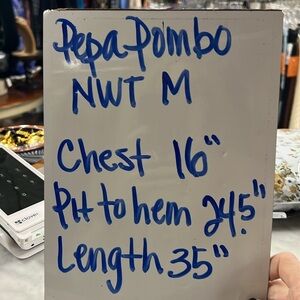 Pepa Pombo
NWT M
Chest 16"
Pit to hem 24.5"
Length 35"
clover